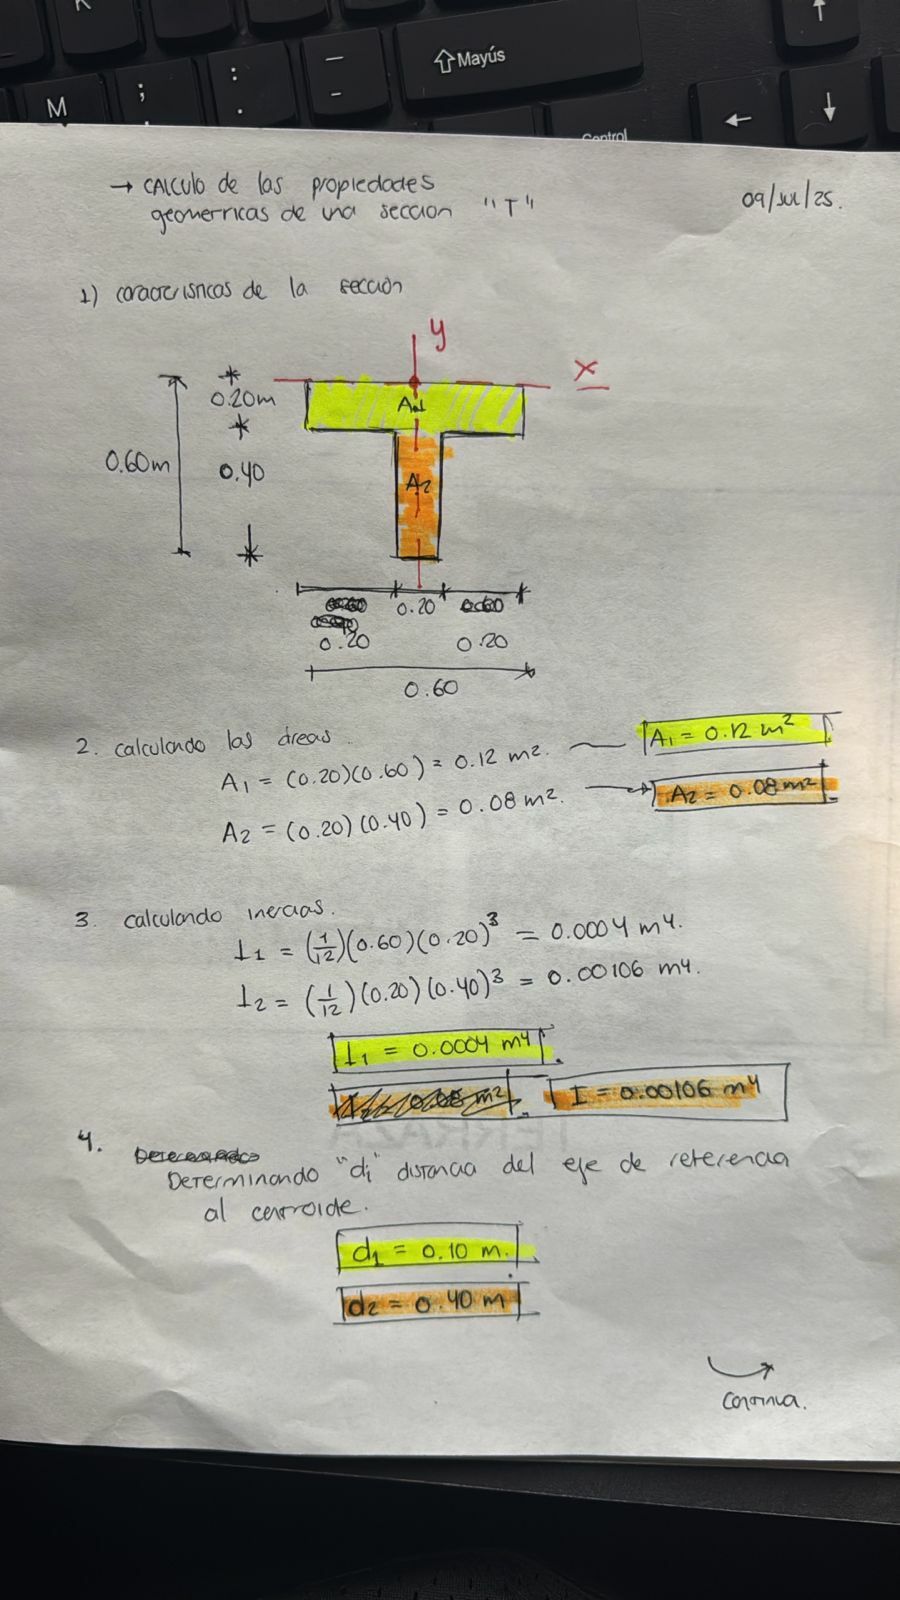 Mayús
M
;
,
:
.
–
-
Control
→ CALCULO de las propiedades
geometricas de una seccion "T"
09/JUL/25.
1) caracteristicas de la sección
y
x
0.20m
A1
0.60m
0.40
A2
0.20
0.20
0.20
0.60
2. calculando las áreas.
A1 = (0.20)(0.60) = 0.12 m2.
A1 = 0.12 m2
A2 = (0.20)(0.40) = 0.08 m2.
A2 = 0.08 m2
3. calculando inercias.
I1 = (1/12)(0.60)(0.20)3 = 0.0004 m4.
I2 = (1/12)(0.20)(0.40)3 = 0.00106 m4.
I1 = 0.0004 m4.
I = 0.00106 m4
4.
Determinando "di" distancia del eje de referencia
al centroide.
d1 = 0.10 m.
d2 = 0.40 m
continua.